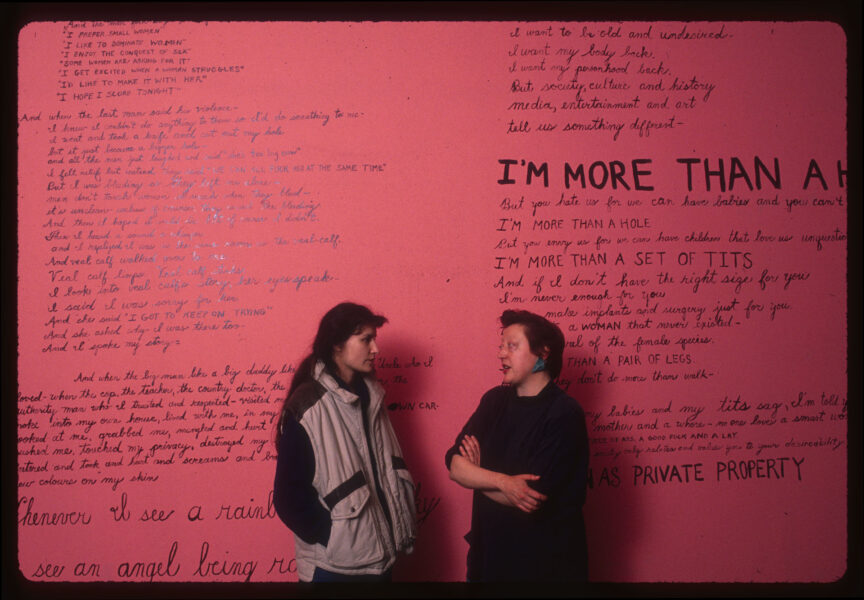 "I PREFER SMALL WOMEN"
"I LIKE TO DOMINATE WOMEN"
"I ENJOY THE CONQUEST OF SEX"
"SOME WOMEN ARE ASKING FOR IT"
"I GET EXCITED WHEN A WOMAN STRUGGLES"
"I'D LIKE TO MAKE IT WITH HER"
"I HOPE I SCORE TONIGHT"
And when the last man said his violence-
I knew I couldn't do anything to them so I'd do something to me-
I went and took a knife and cut out my hole
but it just became a bigger hole-
and all the men just laughed and said
I felt relief but instead AT THE SAME TIME"
But I was bleeding so they left me alone-
men don't touch women when they bleed-
it's unclean
And then I hoped I didn't.
Then I heard a sound
and I replied I was the veal-calf.
And veal calf walked over to me
Veal calf limps. Veal calf
I looks into veal calf's her eyes speak-
I said I was sorry for her
And she said "I GOT TO KEEP ON TRYING"
And she asked why I was there too-
And I spoke my story:-
And when the big man like a big daddy like
loved- when the cop, the teacher, the country doctor, the
authority man who I trusted and respected- visited m
into my own house, lived with me, in my
looked at me, grabbed me, mangled and hurt
me, touched my privacy, destroyed my
and took and and screams and
new colours on my skin
OWN CAR-
Whenever I see a rainb
see an angel being ra
I want to be old and undesired-
I want my body back.
I want my personhood back.
But, society, culture and history
media, entertainment and art
tell us something different-
I'M MORE THAN A H
But you hate us for we can have babies and you can't
I'M MORE THAN A HOLE
But you envy us for we can have children that love us unquestio
I'M MORE THAN A SET OF TITS
And if I don't have the right size for you
I'm never enough for you
make implants and surgery just for you
a WOMAN that never existed-
of the female species.
THAN A PAIR OF LEGS
they don't do more than walk-
my babies and my tits say, I'm told y
mother and a whore- no one loves a smart wo
A GOOD FUCK AND A LAY.
to your desirability
AS PRIVATE PROPERTY